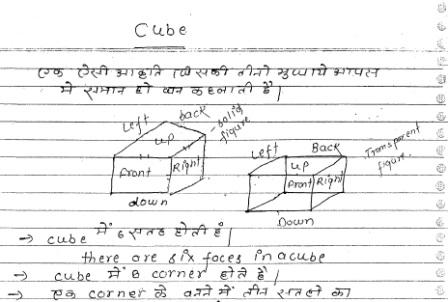 Cube
एक ऐसी आकृति जिसकी तीनो भुजाये आपस
में समान हो घन कहलाती है|
Left back solid figure
up
Front Right
down
Left Back Transparent figure
up
Front Right
Down
→ cube में 6 सतह होती है|
there are six faces in a cube
→ cube में 8 corner होते है|
→ एक corner के बनने में तीन सतहो का